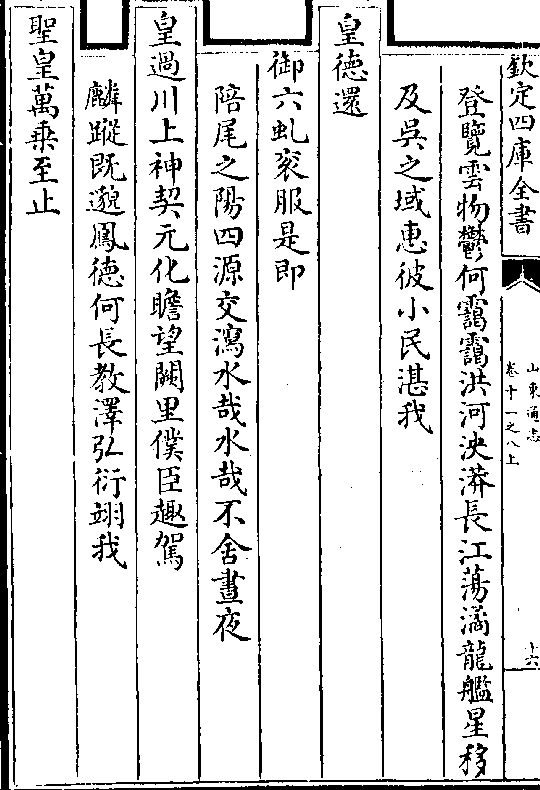 欽定四庫全書
山東通志
卷十一之八上
十六
登覽雲物鬱何靄靄洪河泱漭長江蕩潏龍艦星移
及吳之域惠彼小民湛我
皇德還
御六虬衮服是即
陪尾之陽四源交瀉水哉水哉不舍晝夜
皇過川上神契元化瞻望闕里僕臣趣駕
麟蹤既邈鳳德何長教澤弘衍翊我
聖皇萬乗至止